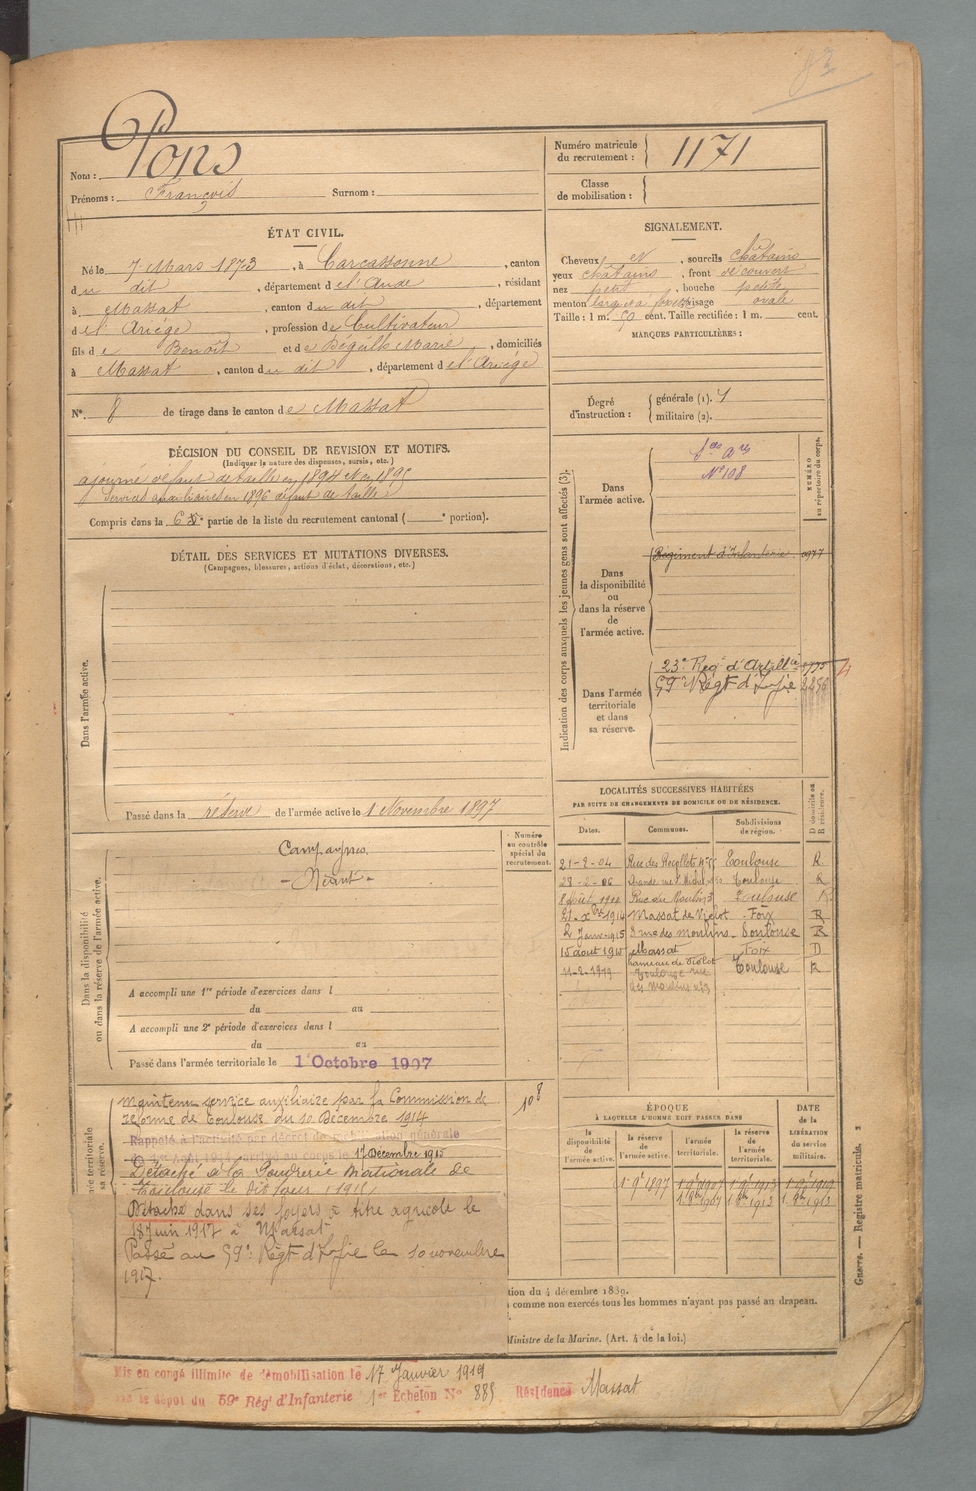 Nom : Pons
Prénoms : François Surnom :
ÉTAT CIVIL.
Né le 7 Mars 1873, à Carcassonne, canton
du dit, département de l'Aude, résidant
à Massat, canton du dit, département
de l'Ariège, profession de Cultivateur
fils de Benoît et de Marie, domiciliés
à Massat, canton du dit, département de l'Ariège
N°. 8 de tirage dans le canton de Massat
DÉCISION DU CONSEIL DE REVISION ET MOTIFS.
(Indiquer la nature des dispenses, sursis, etc.)
ajourné défaut de taille en 1894 et en 1895
Services auxiliaires en 1896 défaut de taille
Compris dans la 6e partie de la liste du recrutement cantonal ( e portion).
DÉTAIL DES SERVICES ET MUTATIONS DIVERSES.
(Campagnes, blessures, actions d'éclat, décorations, etc.)
Dans l'armée active.
Passé dans la réserve de l'armée active le 1 Novembre 1897
Numéro
au contrôle
spécial du
recrutement.
Dans la disponibilité
ou dans la réserve de l'armée active.
Campagnes
- Néant -
A accompli une 1re période d'exercices dans l
du au
A accompli une 2e période d'exercices dans l
du au
Passé dans l'armée territoriale le 1 Octobre 1907
territoriale
sa réserve.
108
Maintenu service auxiliaire par la Commission de
réforme de Toulouse du 10 Décembre 1914
Rappelé à l'activité par décret de mobilisation générale
du 1er Août 1914 arrivé au corps le 1 Décembre 1915
Détaché à la Poudrerie Nationale de
Toulouse le dit jour 1915
Détaché dans ses foyers à titre agricole le
18 Juin 1917 à Massat
Passé au 59e Régt d'Infie le 10 novembre
1917.
Mis en congé illimité de démobilisation le 17 Janvier 1919
dépôt du 59e Rég' d'Infanterie 1er Échelon N° 885 Résidence Massat
Numéro matricule
du recrutement : 1171
Classe
de mobilisation :
SIGNALEMENT.
Cheveux et, sourcils châtains
yeux châtains, front découvert
nez petit, bouche petite
menton visage ovale
Taille : 1 m. 50 cent. Taille rectifiée : 1 m. cent.
MARQUES PARTICULIÈRES :
Degré
d'instruction :
générale (1).
militaire (2).
Indication des corps auxquels les jeunes gens sont affectés (3).
NUMÉRO
au répertoire du corps.
Dans
l'armée active.
Sces Ares
N° 108
Dans
la disponibilité
ou
dans la réserve
de
l'armée active.
Régiment d'Infanterie
Dans l'armée
territoriale
et dans
sa réserve.
23e Régt d'Artillie
59e Régt d'Infie
LOCALITÉS SUCCESSIVES HABITÉES
PAR SUITE DE CHANGEMENTS DE DOMICILE OU DE RÉSIDENCE.
D domicile ou
R résidence.
Dates. Communes. Subdivisions
de région.
21-2-04 Rue des Récollets Toulouse R
28-2-06 Grande rue St Michel Toulouse R
8 août Rue des Moulins Toulouse R
21 Xbre 1914 Massat de Foix R
2 Janv. 1915 8 rue des Moulins Toulouse R
15 août 1915 Massat Foix D
11-2-1919 Toulouse rue Toulouse R
des Moulins
ÉPOQUE
À LAQUELLE L'HOMME DOIT PASSER DANS
DATE
de la
LIBÉRATION
du service
militaire.
la
disponibilité
de
l'armée active.
la réserve
de
l'armée active.
l'armée
territoriale.
la réserve
de
l'armée
territoriale.
1 9bre 1897 1 9bre 1907 1 9bre 1913 1 9bre 1919
1 8bre 1907 1 8bre 1913 1 8bre 1913
tion du 4 décembre 1889.
comme non exercés tous les hommes n'ayant pas passé au drapeau.
Ministre de la Marine. (Art. 4 de la loi.)
Guerre. — Registre matricule. 2